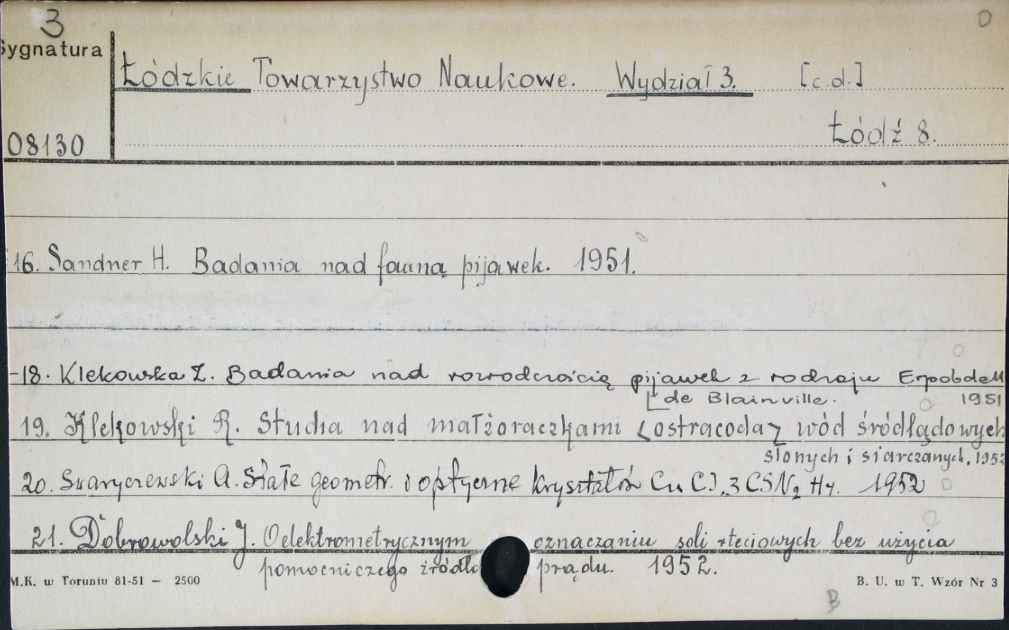 3
Sygnatura
Łódzkie Towarzystwo Naukowe. Wydział 3. [c.d.]
08130
Łódź 8.
16. Sandner H. Badania nad fauną pijawek. 1951.
18. Klekowska Z. Badania nad rozrodczością pijawek z rodzaju Erpobdell
[de Blainville. 1951
19. Klekowski R. Studia nad małżoraczkami [ostracoda] wód śródlądowych
słonych i siarczanych. 1952
20. Swaryczewski A. Stałe geometr. i optyczne kryształów Cu Cl. 3 CSN2 H4. 1952
21. Dobrowolski J. O elektrometrycznym oznaczaniu soli rtęciowych bez użycia
pomocniczego źródła prądu. 1952.
M.K. w Toruniu 81-51 — 2500
B. U. w T. Wzór Nr 3
B